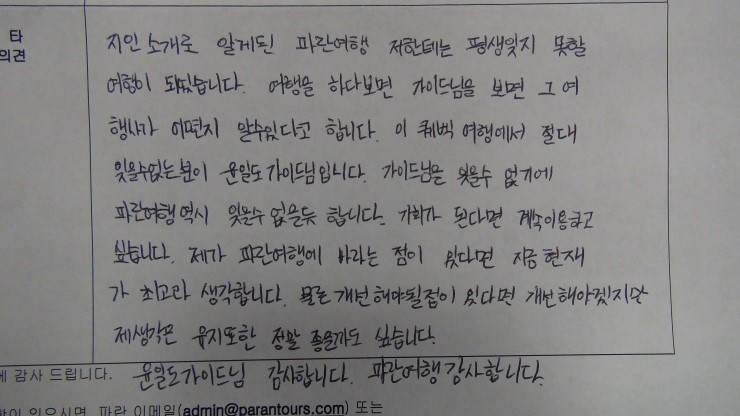 타
의견
지인소개로 알게된 파란여행 저한테는 평생잊지 못할
여행이 되었습니다. 여행을 하다보면 가이드님을 보면 그 여
행사가 어떤지 알수있다고 합니다. 이 퀘벡 여행에서 절대
잊을수없는분이 윤일도가이드님입니다. 가이드님을 잊을수 없기에
파란여행역시 잊을수 없을듯 합니다. 기회가 된다면 계속이용하고
싶습니다. 제가 파란여행에 바라는 점이 있다면 지금 현재
가 최고라 생각합니다. 물론 개선해야될점이 있다면 개선해야겠지만
제생각은 유지또한 정말 좋을까도 싶습니다.
에 감사 드립니다. 윤일도가이드님 감사합니다. 파란여행감사합니다.
이 있으시면 파란 이메일(admin@parantours.com) 또는